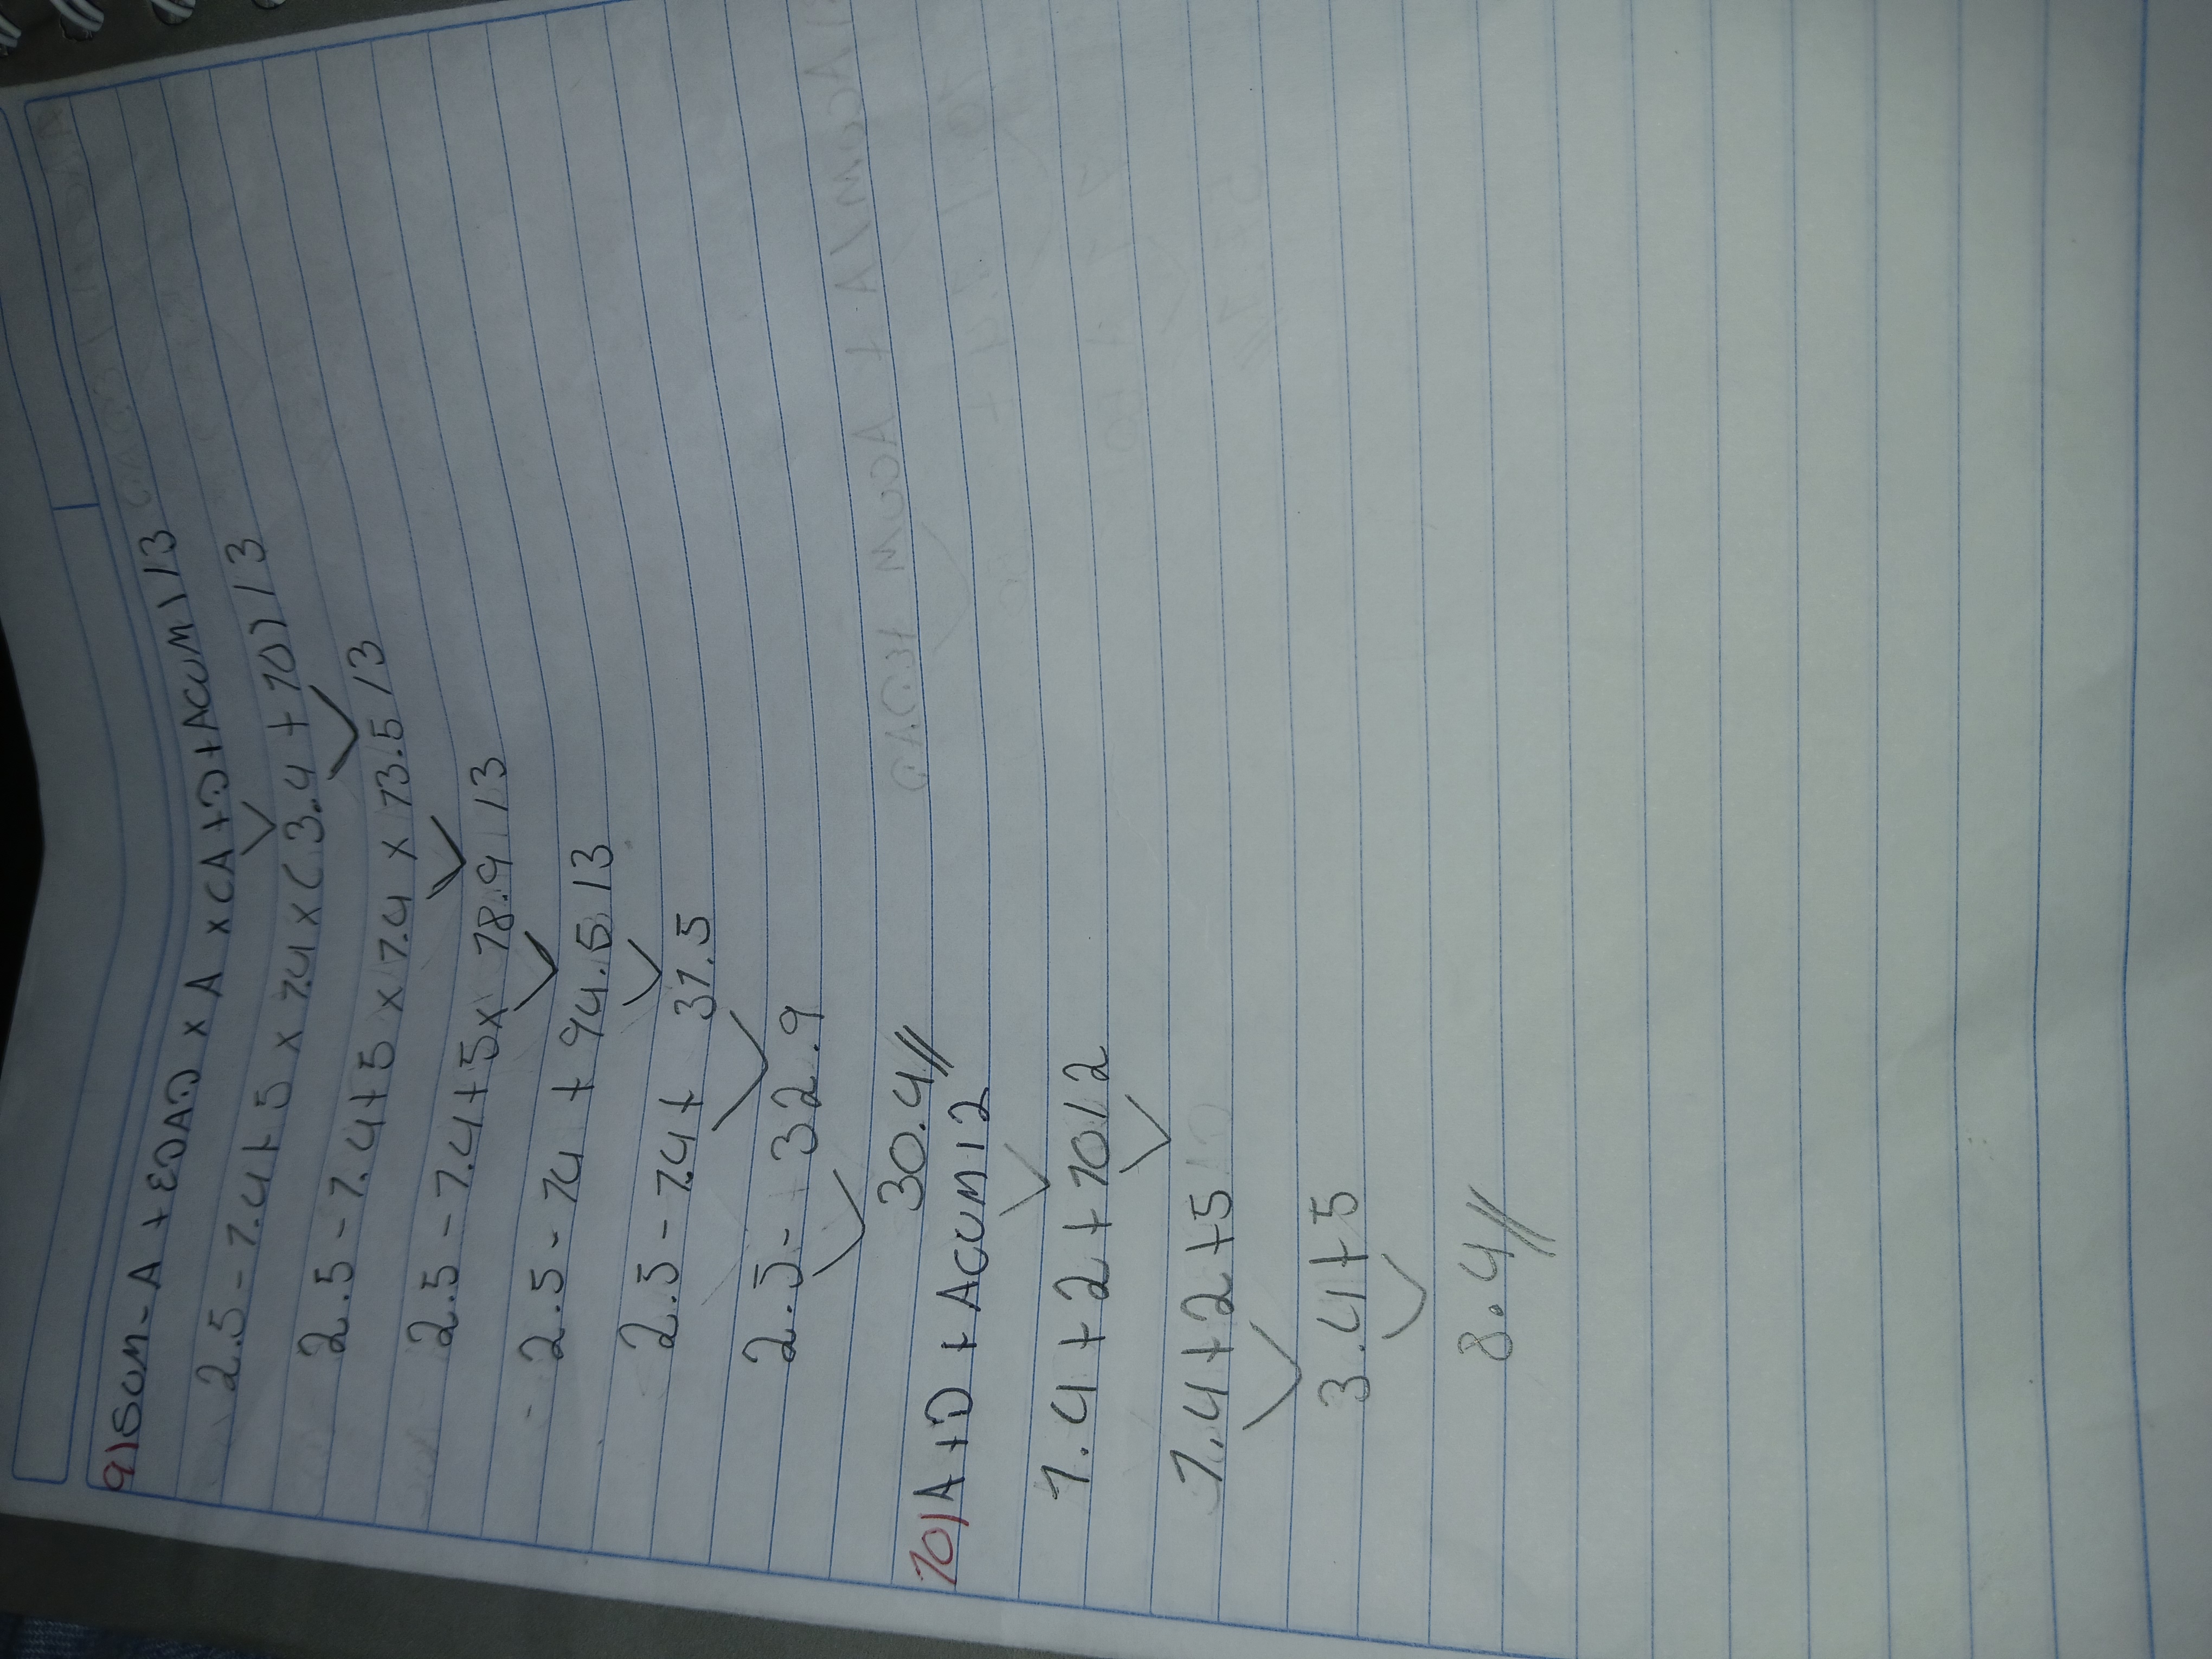 9) SUM - A + EDAD x A x (A + D + ACUM) / 3
2.5 - 1.4 + 5 x 1.4 x (3.4 + 10) / 3
2.5 - 1.4 + 5 x 1.4 x 13.5 / 3
2.5 - 1.4 + 5 x 18.9 / 3
2.5 - 14 + 94.5 / 3
2.5 - 1.4 + 31.5
2.5 - 32.9
30.4//
10) A + D + ACUM / 2
1.4 + 2 + 10 / 2
1.4 + 2 + 5
3.4 + 5
8.4//